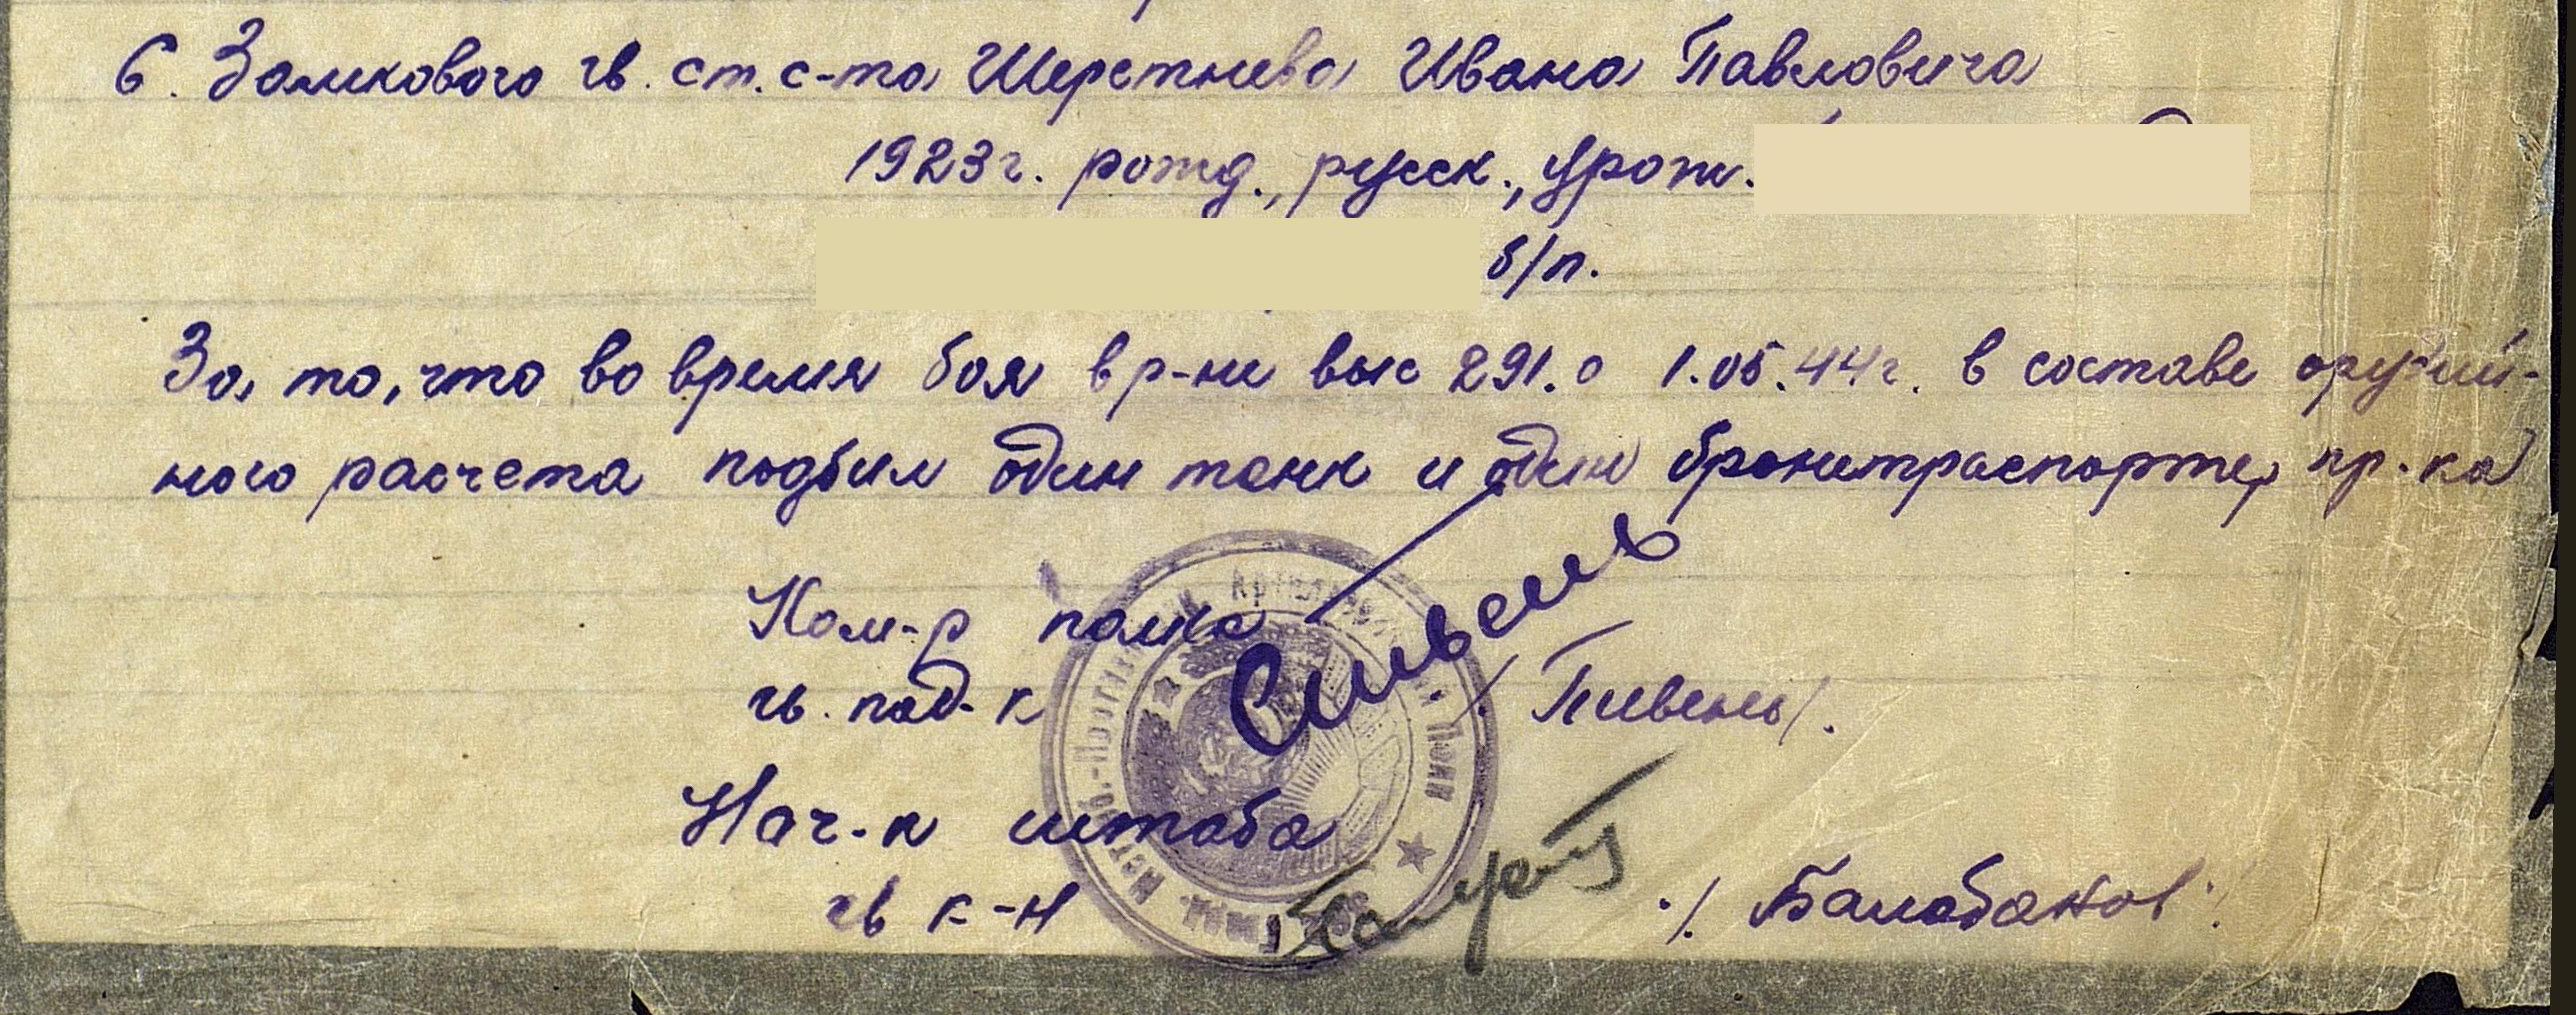 6. Замкового гв. ст. с-та Шерстнева Ивана Павловича
1923г. рожд., русск., урож.
б/п.
За то, что во время боя в р-не выс 291.0 1.05.44г. в составе орудий-
ного расчета подбил один танк и один бронетраспортер пр-ка
Ком-р полка
гв. под-к /Пивень/.
Нач-к штаба
гв к-н /Балабанов/